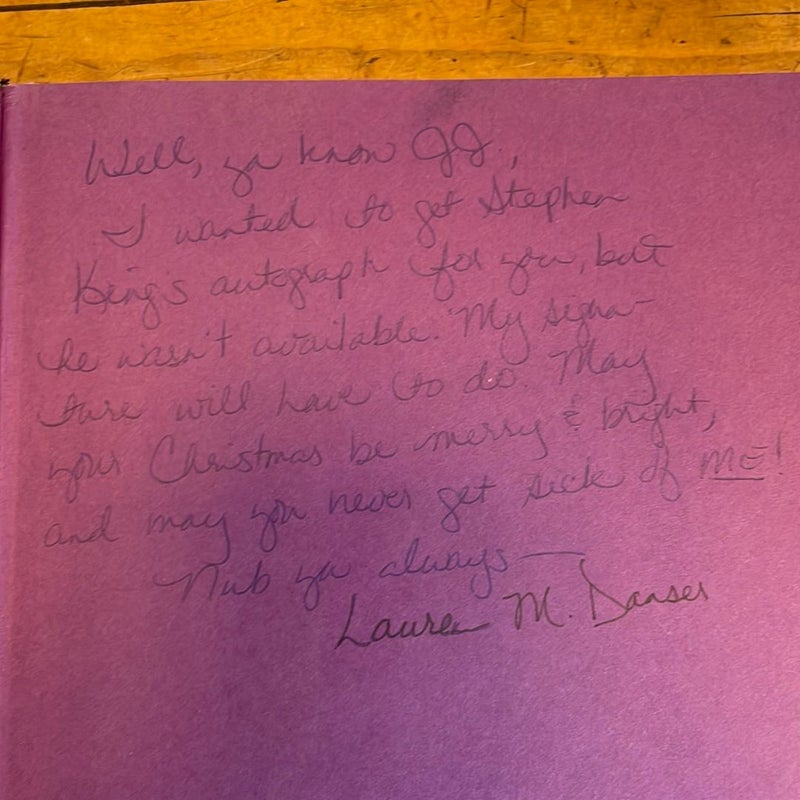 Well, ya know JJ.,
I wanted to get Stephen
King's autograph for you, but
he wasn't available. My signa-
ture will have to do. May
your Christmas be merry & bright,
and may you never get sick of ME!
Nub ya always—
Lauren M. Danser